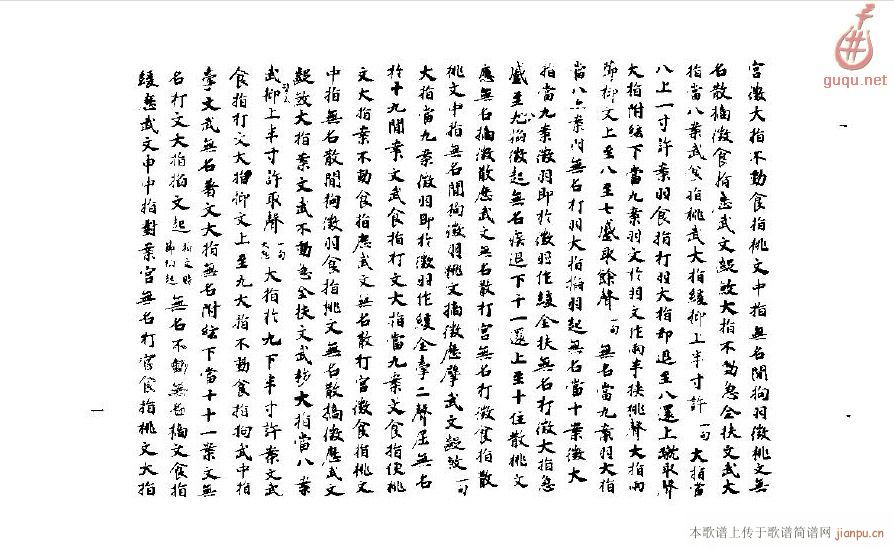 宮徵大指不動食指挑文中指無名間拘羽徵挑文無
名散摘徵食指應武文緩歇大指不動急全扶文武大
指當八案武食指挑武大指緩抑上半寸許一句大指當
八上一寸許案羽食指打羽大指却退至八還上取聲
大指附絃下當九案羽文於羽文作兩半扶挑聲大指兩
節抑文上至八至七盛取餘聲一句無名當九案羽大指
當八案無名打羽大指掐羽起無名當十案徵大
指當九案徵羽即於徵羽作緩全扶無名打徵大指急
盛至掐徵起無名疾退下十一還上至十住散挑文
應無名摘徵散應武文無名散打宮無名打徵食指散
挑文中指無名間拘徵羽挑文摘徵應擘武文緩歇一句
大指當九案徵羽即於徵羽作緩全二聲屈無名
於十九間案文武食指打文大指當九案文食指便挑
文大指案不動食指應武文無名散打宮徵食指挑文
中指無名散間拘徵羽食指挑文無名散摘徵應武文
緩歇大指案文武不動急全扶文武大指當八案
武抑上半寸許取聲一句大指於九下半寸許案文武
食指打文大指抑文上至九大指不動食指拘武中指
文武無名文大指無名附絃下當十十一案文無
名打文大指掐文起無名不動無名摘文食指
緩應武文中指對案宮無名打宮食指挑文大指
一
guqu.net
本歌谱上传于歌谱简谱网 jianpu.cn